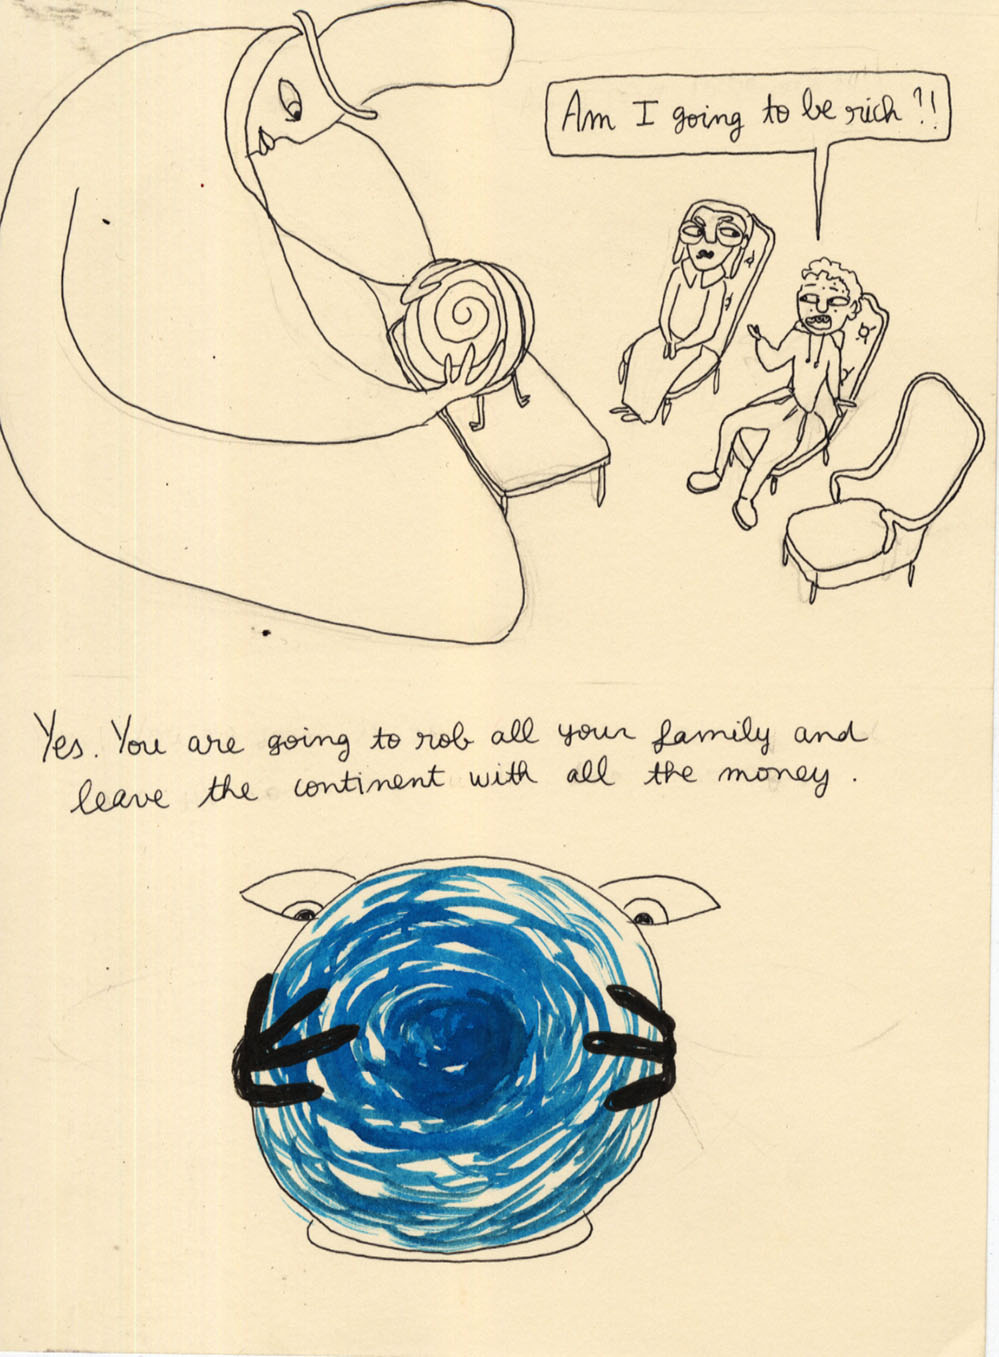 Am I going to be rich ?!
Yes. You are going to rob all your family and
leave the continent with all the money.